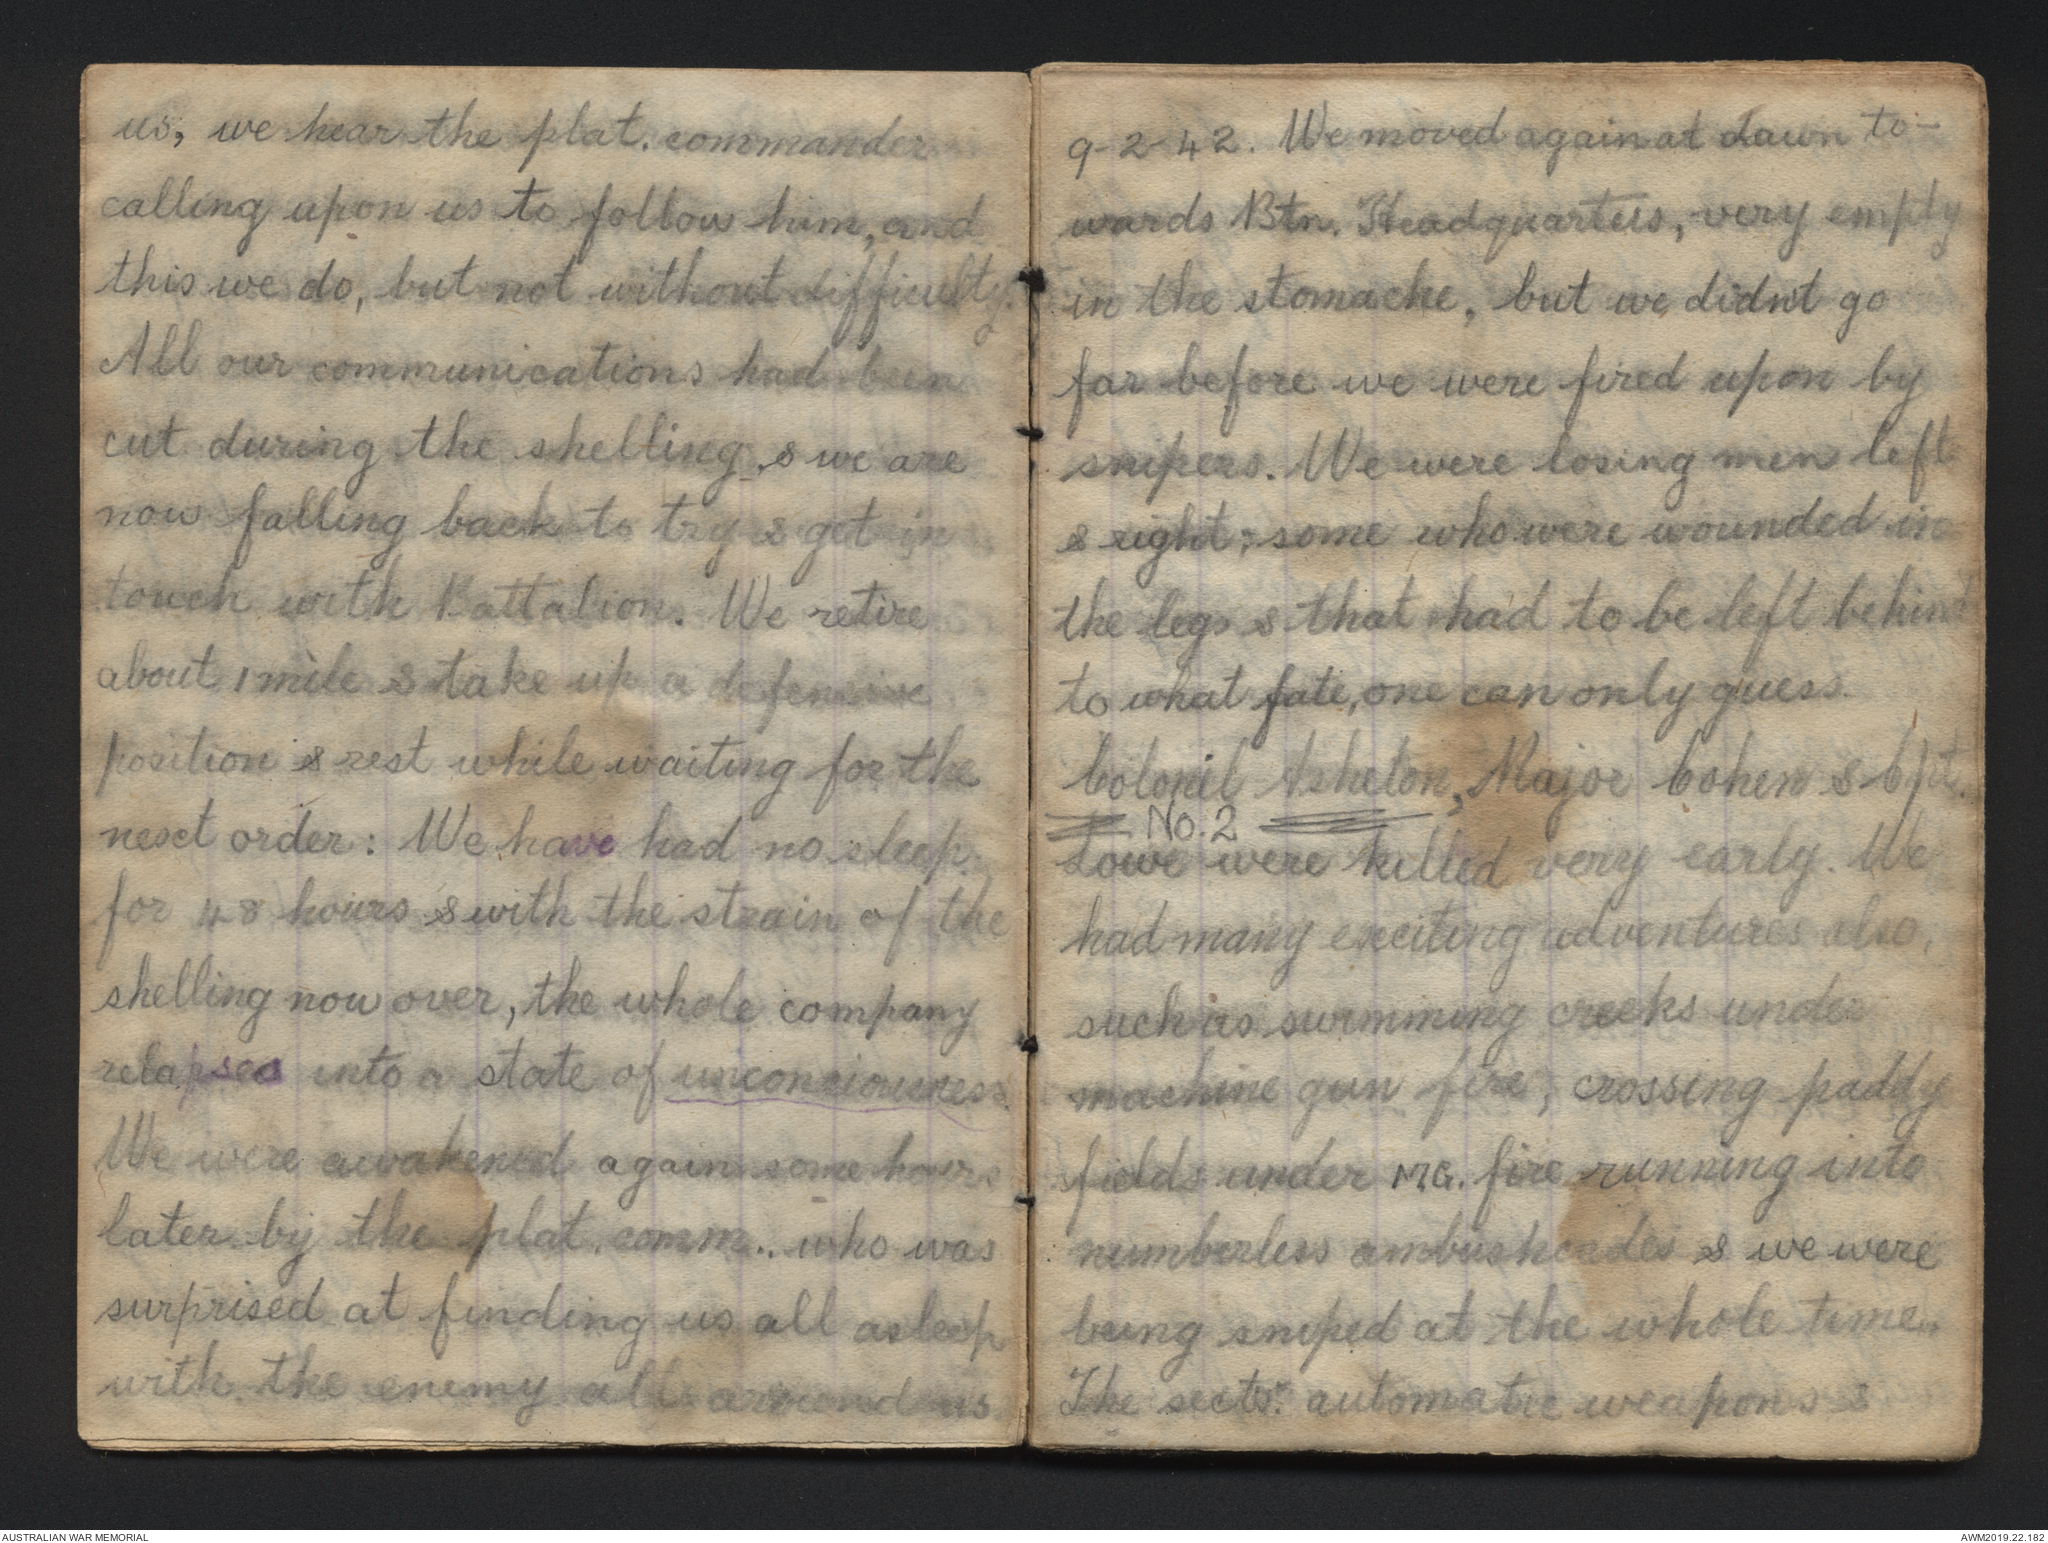 us, we hear the plat. commander
calling upon us to follow him, and
this we do, but not without difficulty.
All our communications had been
cut during the shelling, & we are
now falling back to try & get in
touch with Battalion. We retire
about 1 mile & take up a defensive
position & rest while waiting for the
next order: We have had no sleep
for 48 hours & with the strain of the
shelling now over, the whole company
relapses into a state of unconsciousness.
We were awakened again some hours
later by the plat. comm.. who was
surprised at finding us all asleep
with the enemy all around us
9-2-42. We moved again at dawn to-
wards Btn. Headquarters, very empty
in the stomache, but we didn't go
far before we were fired upon by
snipers. We were losing men left
& right; some who were wounded in
the legs & that had to be left behind
to what fate, one can only guess.
Colonel Asheton, Major Cohen & Cpt.
No. 2
Lowe were killed very early. We
had many exciting adventures also,
such as swimming creeks under
machine gun fire, crossing paddy
fields under M.G. fire running into
numberless ambushcades & we were
being sniped at the whole time.
The sects. automatic weapons &
AUSTRALIAN WAR MEMORIAL
AWM2019.22.182